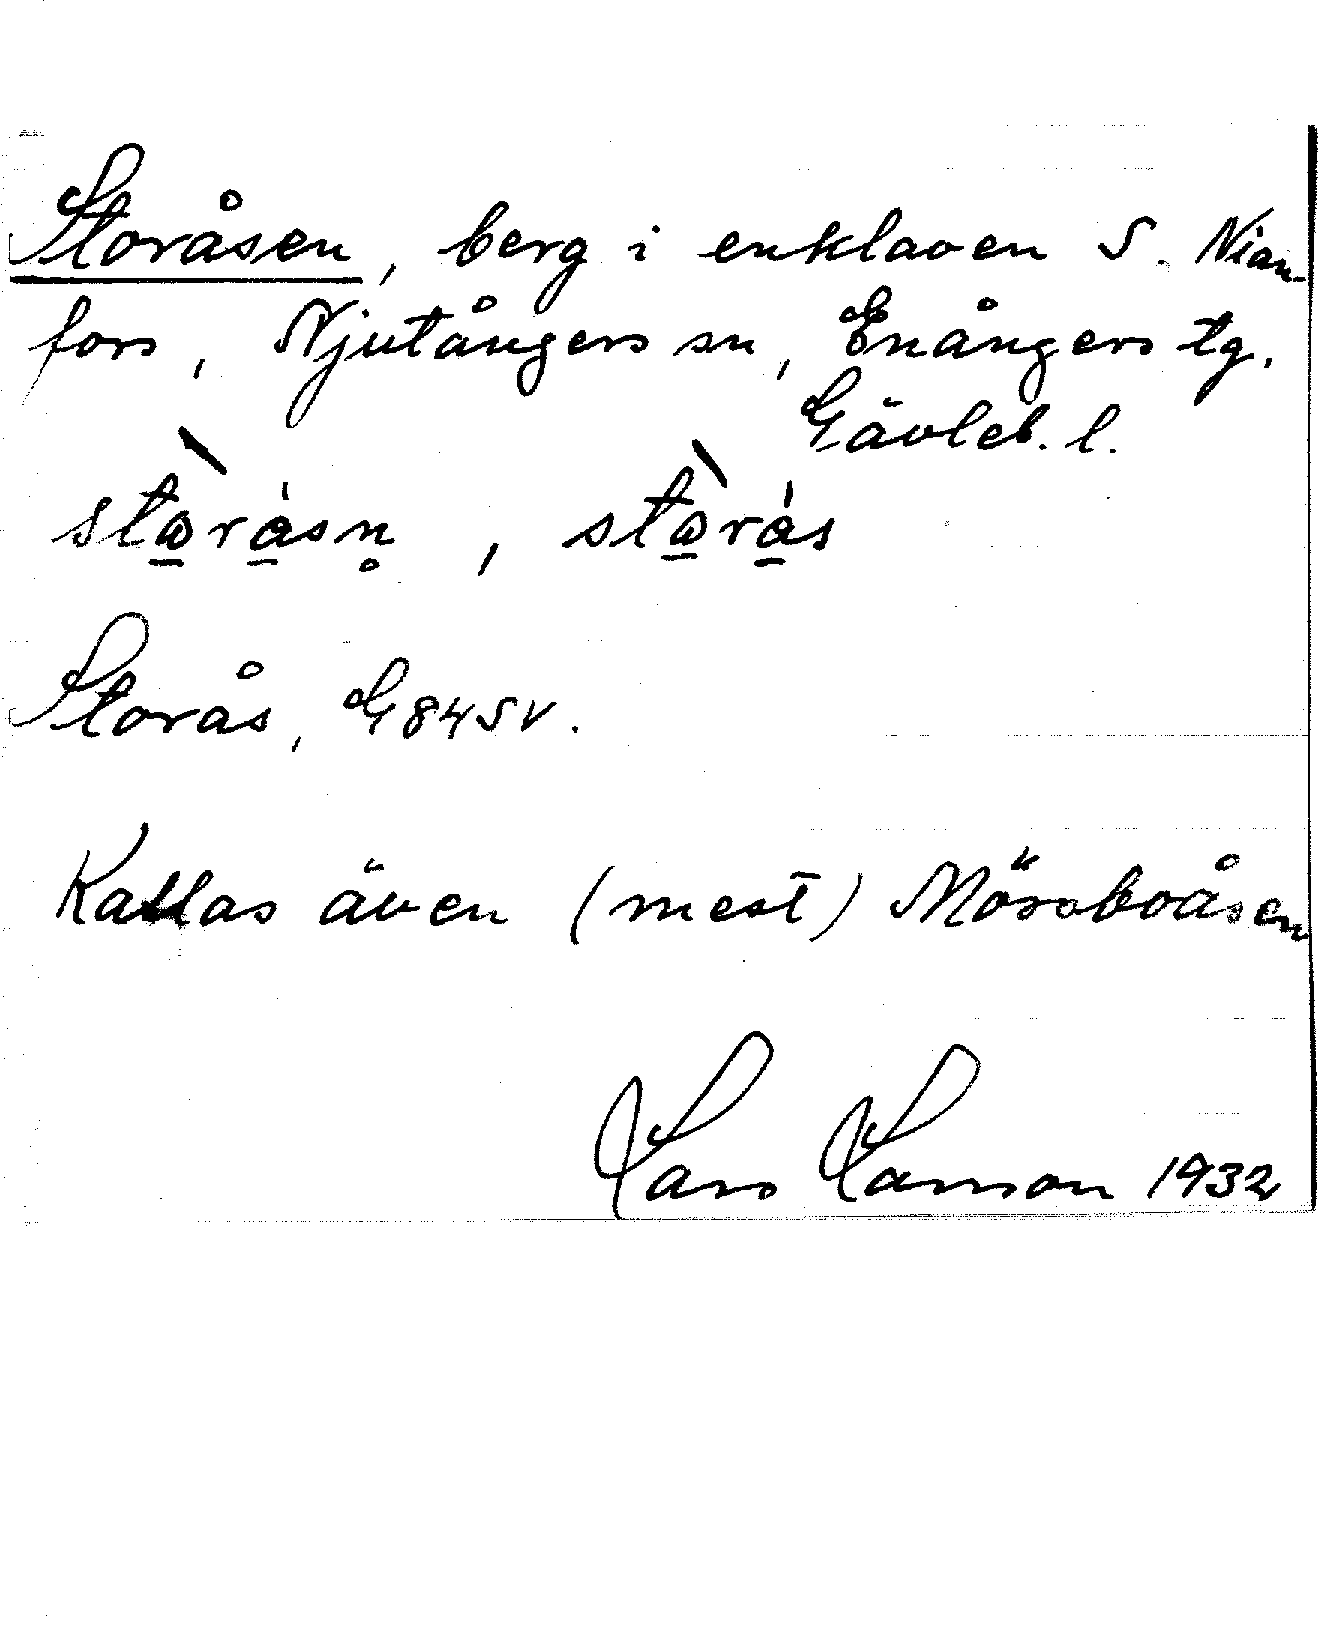 Storåsen, berg i enklaven S. Nian-
fors, Njutångers sn, Enångers tg.
Gävleb. l.
Storås, G84SV.
Kallas även (mest) Mössboåsen
Lars Larsson 1932